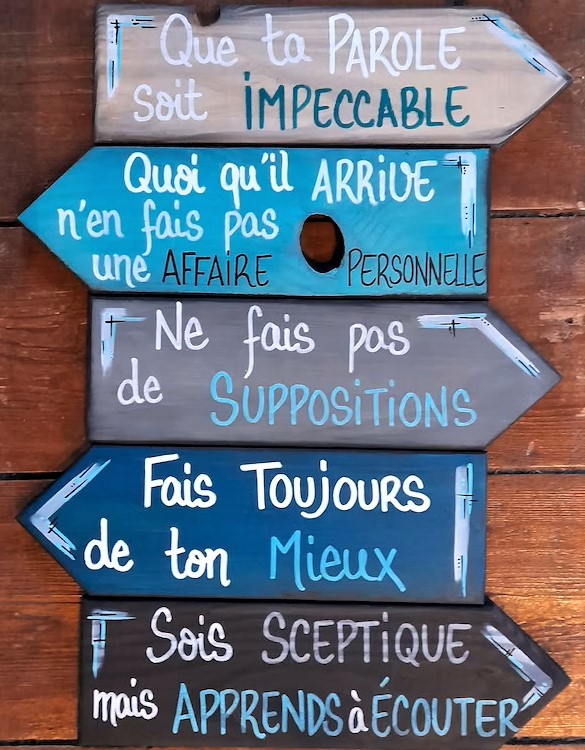 Que ta PAROLE
soit IMPECCABLE
Quoi qu'il ARRIVE
n'en fais pas
une AFFAIRE PERSONNELLE
Ne fais pas
de SUPPOSITIONS
Fais TOUJOURS
de ton Mieux
Sois SCEPTIQUE
mais APPRENDS à ÉCOUTER